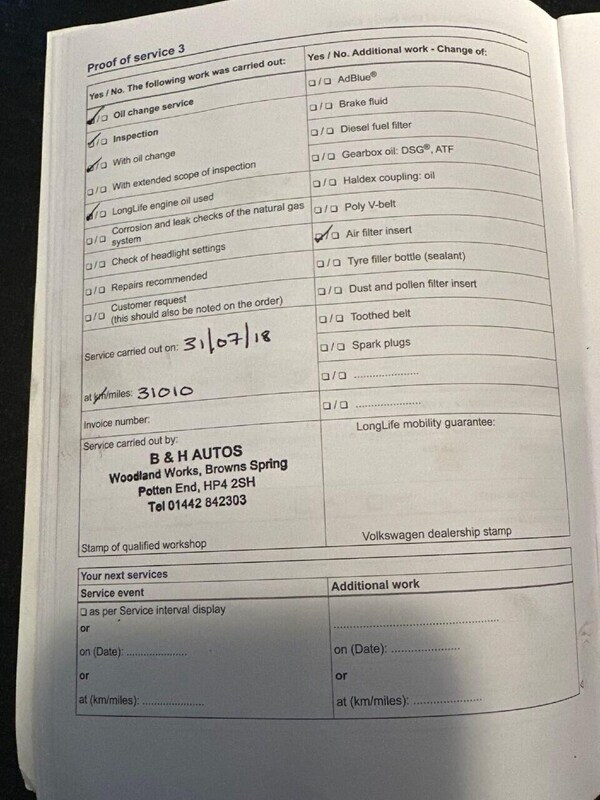 Proof of service 3
Yes / No. The following work was carried out:
☑/☐ Oil change service
☑/☐ Inspection
☑/☐ With oil change
☐/☐ With extended scope of inspection
☑/☐ LongLife engine oil used
☐/☐ Corrosion and leak checks of the natural gas
system
☐/☐ Check of headlight settings
☐/☐ Repairs recommended
☐/☐ Customer request
(this should also be noted on the order)
Service carried out on: 31/07/18
at km/miles: 31010
Invoice number:
Service carried out by:
B & H AUTOS
Woodland Works, Browns Spring
Potten End, HP4 2SH
Tel 01442 842303
Stamp of qualified workshop
Yes / No. Additional work - Change of:
☐/☐ AdBlue®
☐/☐ Brake fluid
☐/☐ Diesel fuel filter
☐/☐ Gearbox oil: DSG®, ATF
☐/☐ Haldex coupling: oil
☐/☐ Poly V-belt
☑/☐ Air filter insert
☐/☐ Tyre filler bottle (sealant)
☐/☐ Dust and pollen filter insert
☐/☐ Toothed belt
☐/☐ Spark plugs
☐/☐ ....................
☐/☐ ....................
LongLife mobility guarantee:
Volkswagen dealership stamp
Your next services
Service event
☐ as per Service interval display
or
on (Date): ....................
or
at (km/miles): ....................
Additional work
..................................................
on (Date): ....................
or
at (km/miles): ....................